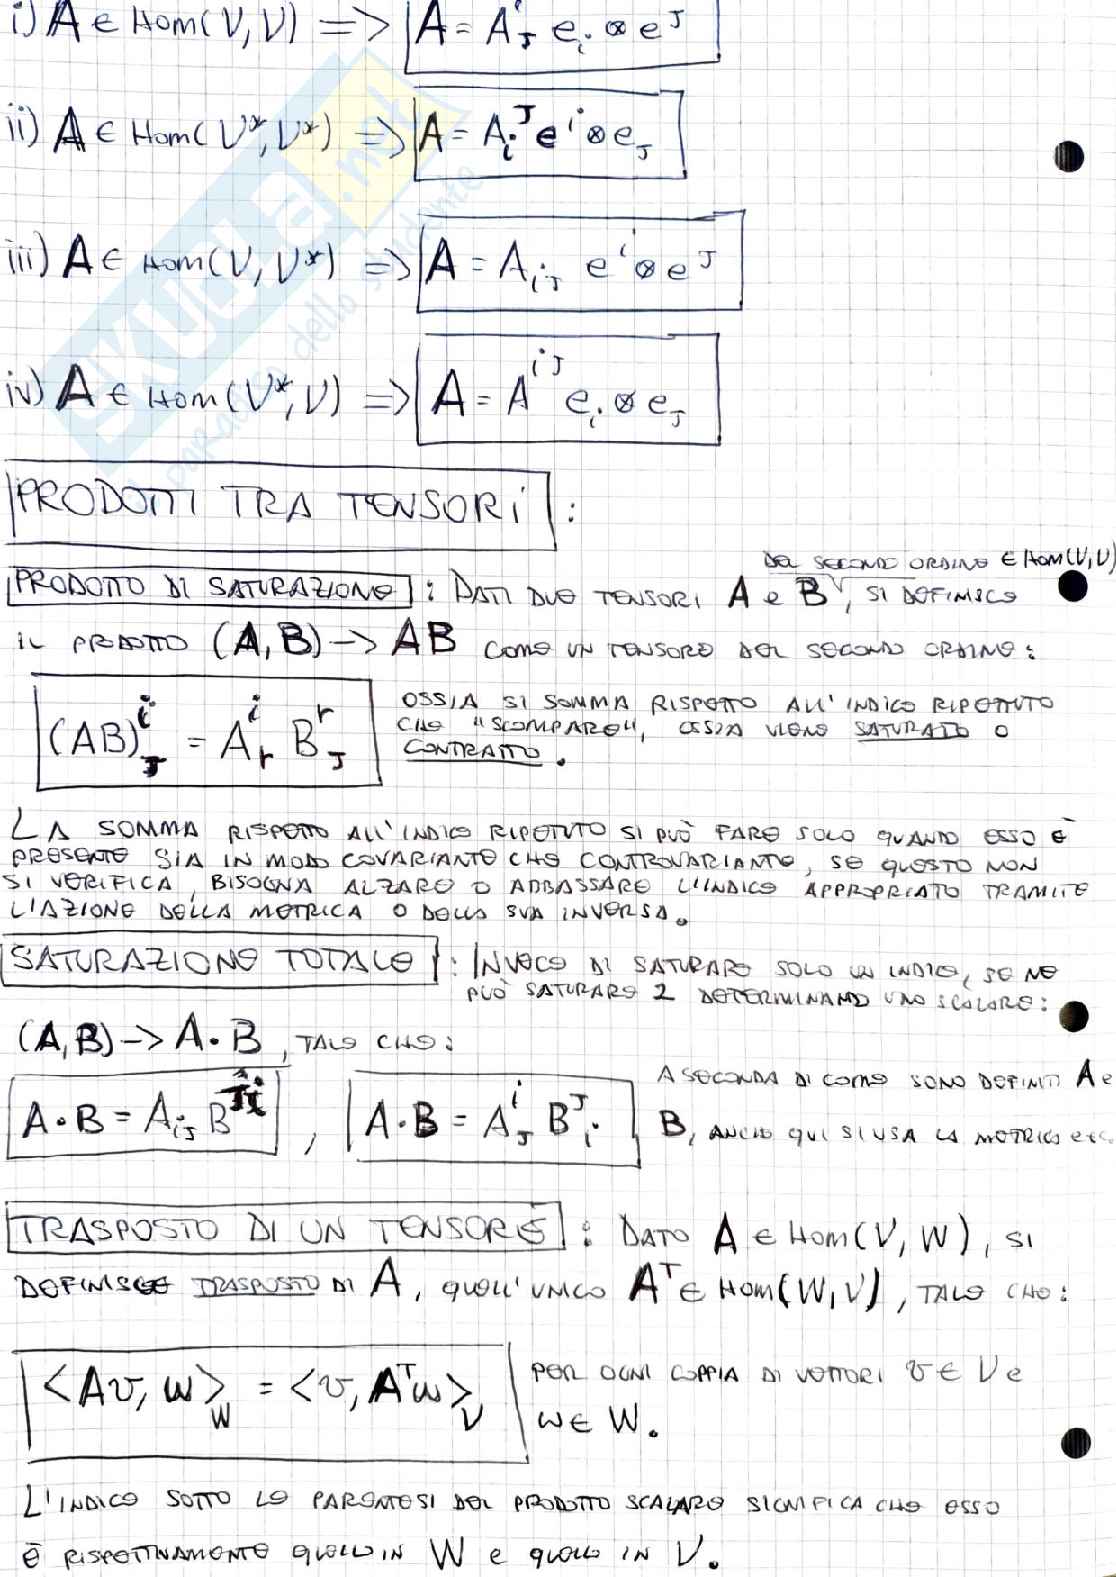 i) A ∈ Hom(V, V) => A = Aⁱ_J e_i ⊗ e^J
ii) A ∈ Hom(V*, V*) => A = A_i^J e^i ⊗ e_J
iii) A ∈ Hom(V, V*) => A = A_iJ e^i ⊗ e^J
iv) A ∈ Hom(V*, V) => A = A^iJ e_i ⊗ e_J
PRODOTTI TRA TENSORI :
DEL SECONDO ORDINE ∈ Hom(V,V)
PRODOTTO DI SATURAZIONE : DATI DUE TENSORI A e B, SI DEFINISCE
IL PRODOTTO (A, B) -> AB COME UN TENSORE DEL SECONDO ORDINE:
(AB)^i_J = A^i_r B^r_J
OSSIA SI SOMMA RISPETTO ALL'INDICE RIPETUTO
CHE "SCOMPARE", OSSIA VIENE SATURATO O
CONTRATTO.
LA SOMMA RISPETTO ALL'INDICE RIPETUTO SI PUÒ FARE SOLO QUANDO ESSO È
PRESENTE SIA IN MODO COVARIANTE CHE CONTROVARIANTE, SE QUESTO NON
SI VERIFICA, BISOGNA ALZARE O ABBASSARE L'INDICE APPROPRIATO TRAMITE
L'AZIONE DELLA METRICA O DELLA SUA INVERSA.
SATURAZIONE TOTALE : INVECE DI SATURARE SOLO UN INDICE, SE NE
PUÒ SATURARE 2 DETERMINANDO UNO SCALARE:
(A, B) -> A·B, TALE CHE:
A·B = A_iJ B^Ji , A·B = A^i_J B^J_i
A SECONDA DI COME SONO DEFINITI A e
B, ANCHE QUI SI USA LA METRICA etc.
TRASPOSTO DI UN TENSORE : DATO A ∈ Hom(V, W), SI
DEFINISCE TRASPOSTO DI A, QUELL'UNICO A^T ∈ Hom(W, V), TALE CHE:
<Av, w>_W = <v, A^T w>_V
PER OGNI COPPIA DI VETTORI v ∈ V e
w ∈ W.
L'INDICE SOTTO LE PARENTESI DEL PRODOTTO SCALARE SIGNIFICA CHE ESSO
È RISPETTIVAMENTE QUELLO IN W e QUELLO IN V.
SKUOLA.net
il paradiso dello studente